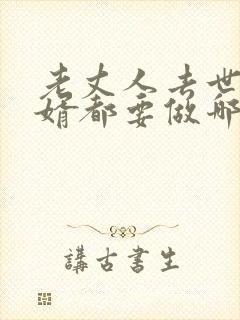 老丈人去世
婿都要做那
講古書生